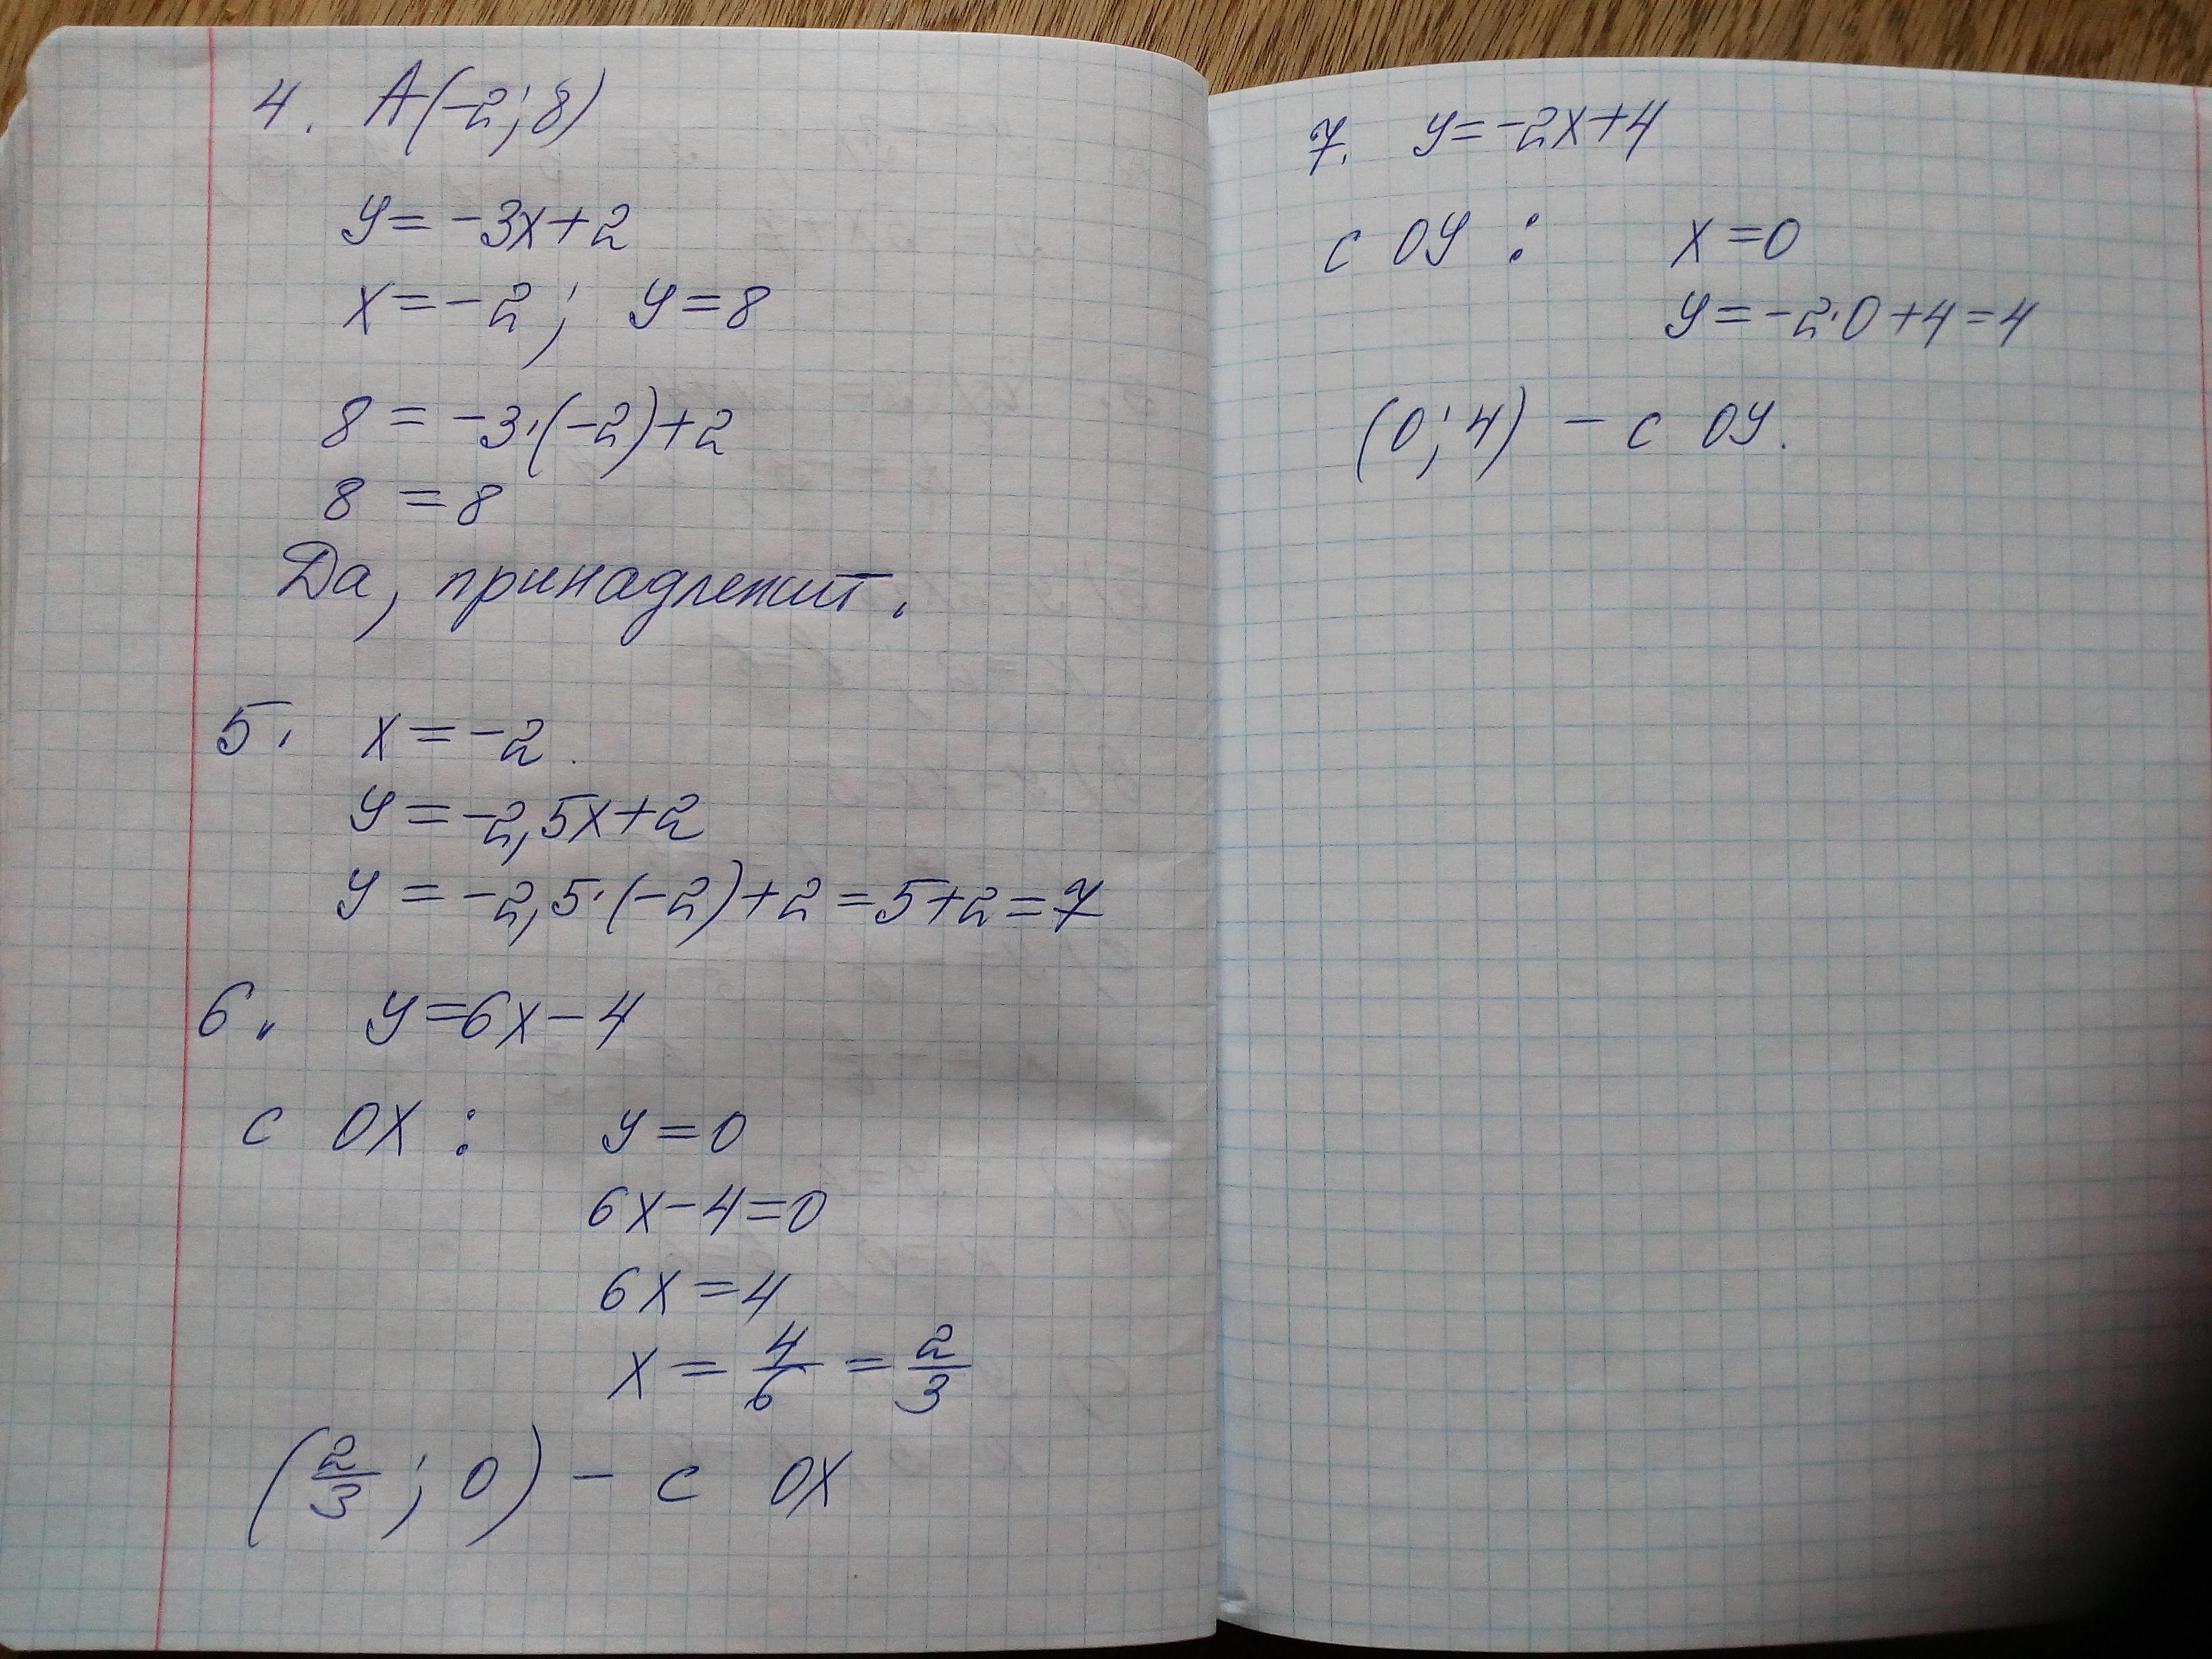 4. A(-2; 8)
y = -3x+2
x = -2; y = 8
8 = -3·(-2)+2
8 = 8
Да, принадлежит.
5. x = -2.
y = -2,5x+2
y = -2,5·(-2)+2 = 5+2 = 7
6. y = 6x-4
с OX : y = 0
6x-4=0
6x = 4
x = 4/6 = 2/3
(2/3; 0) - с OX
7. y = -2x+4
с OY : x = 0
y = -2·0+4 = 4
(0; 4) - с OY.